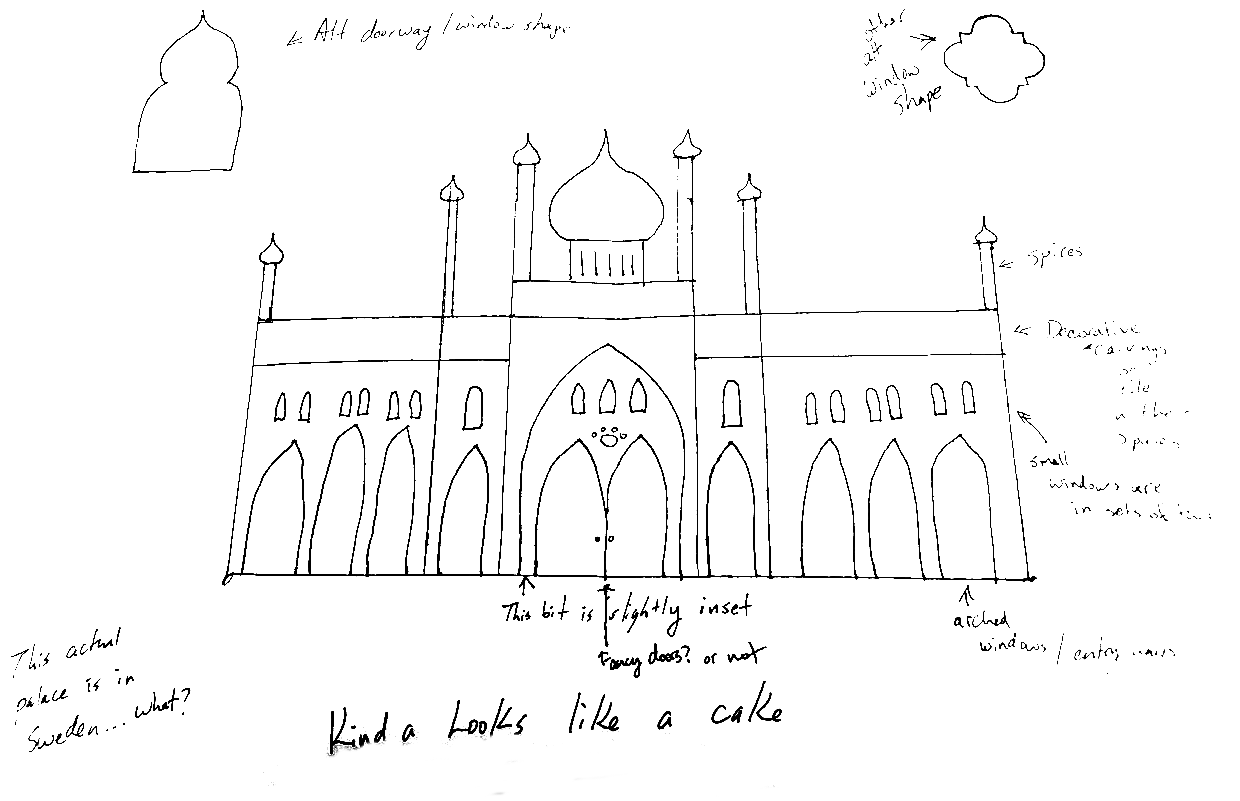 Alt doorway / window shape
other
alt
window
shape
spires
Decorative
carvings
or
tile
in these
spaces
small
windows are
in sets of two
This bit is slightly inset
Fancy doors? or not
arched
windows / entry ways
This actual
palace is in
Sweden... what?
Kinda Looks like a cake